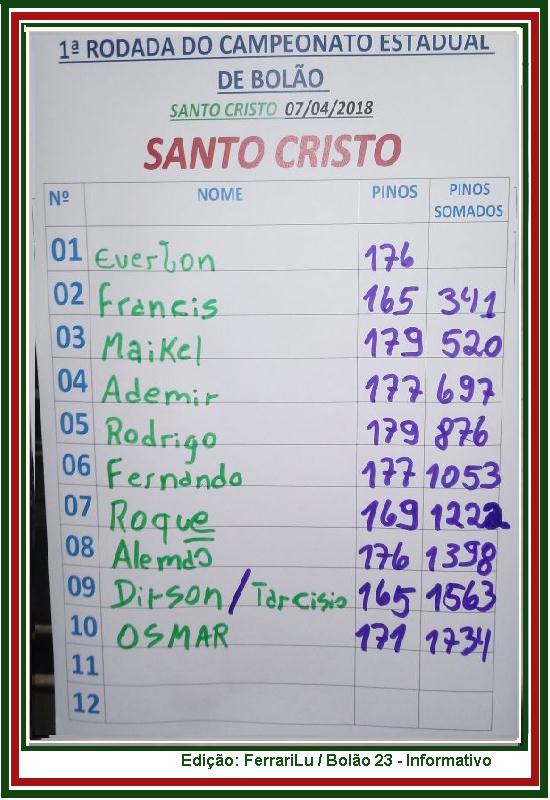 1ª RODADA DO CAMPEONATO ESTADUAL
DE BOLÃO
SANTO CRISTO 07/04/2018
SANTO CRISTO
Nº NOME PINOS PINOS SOMADOS
01 Everton 176
02 Francis 165 341
03 Maikel 179 520
04 Ademir 177 697
05 Rodrigo 179 876
06 Fernando 177 1053
07 Roque 169 1222
08 Alemão 176 1398
09 Dirson / Tarcisio 165 1563
10 OSMAR 171 1734
11
12
Edição: FerrariLu / Bolão 23 - Informativo